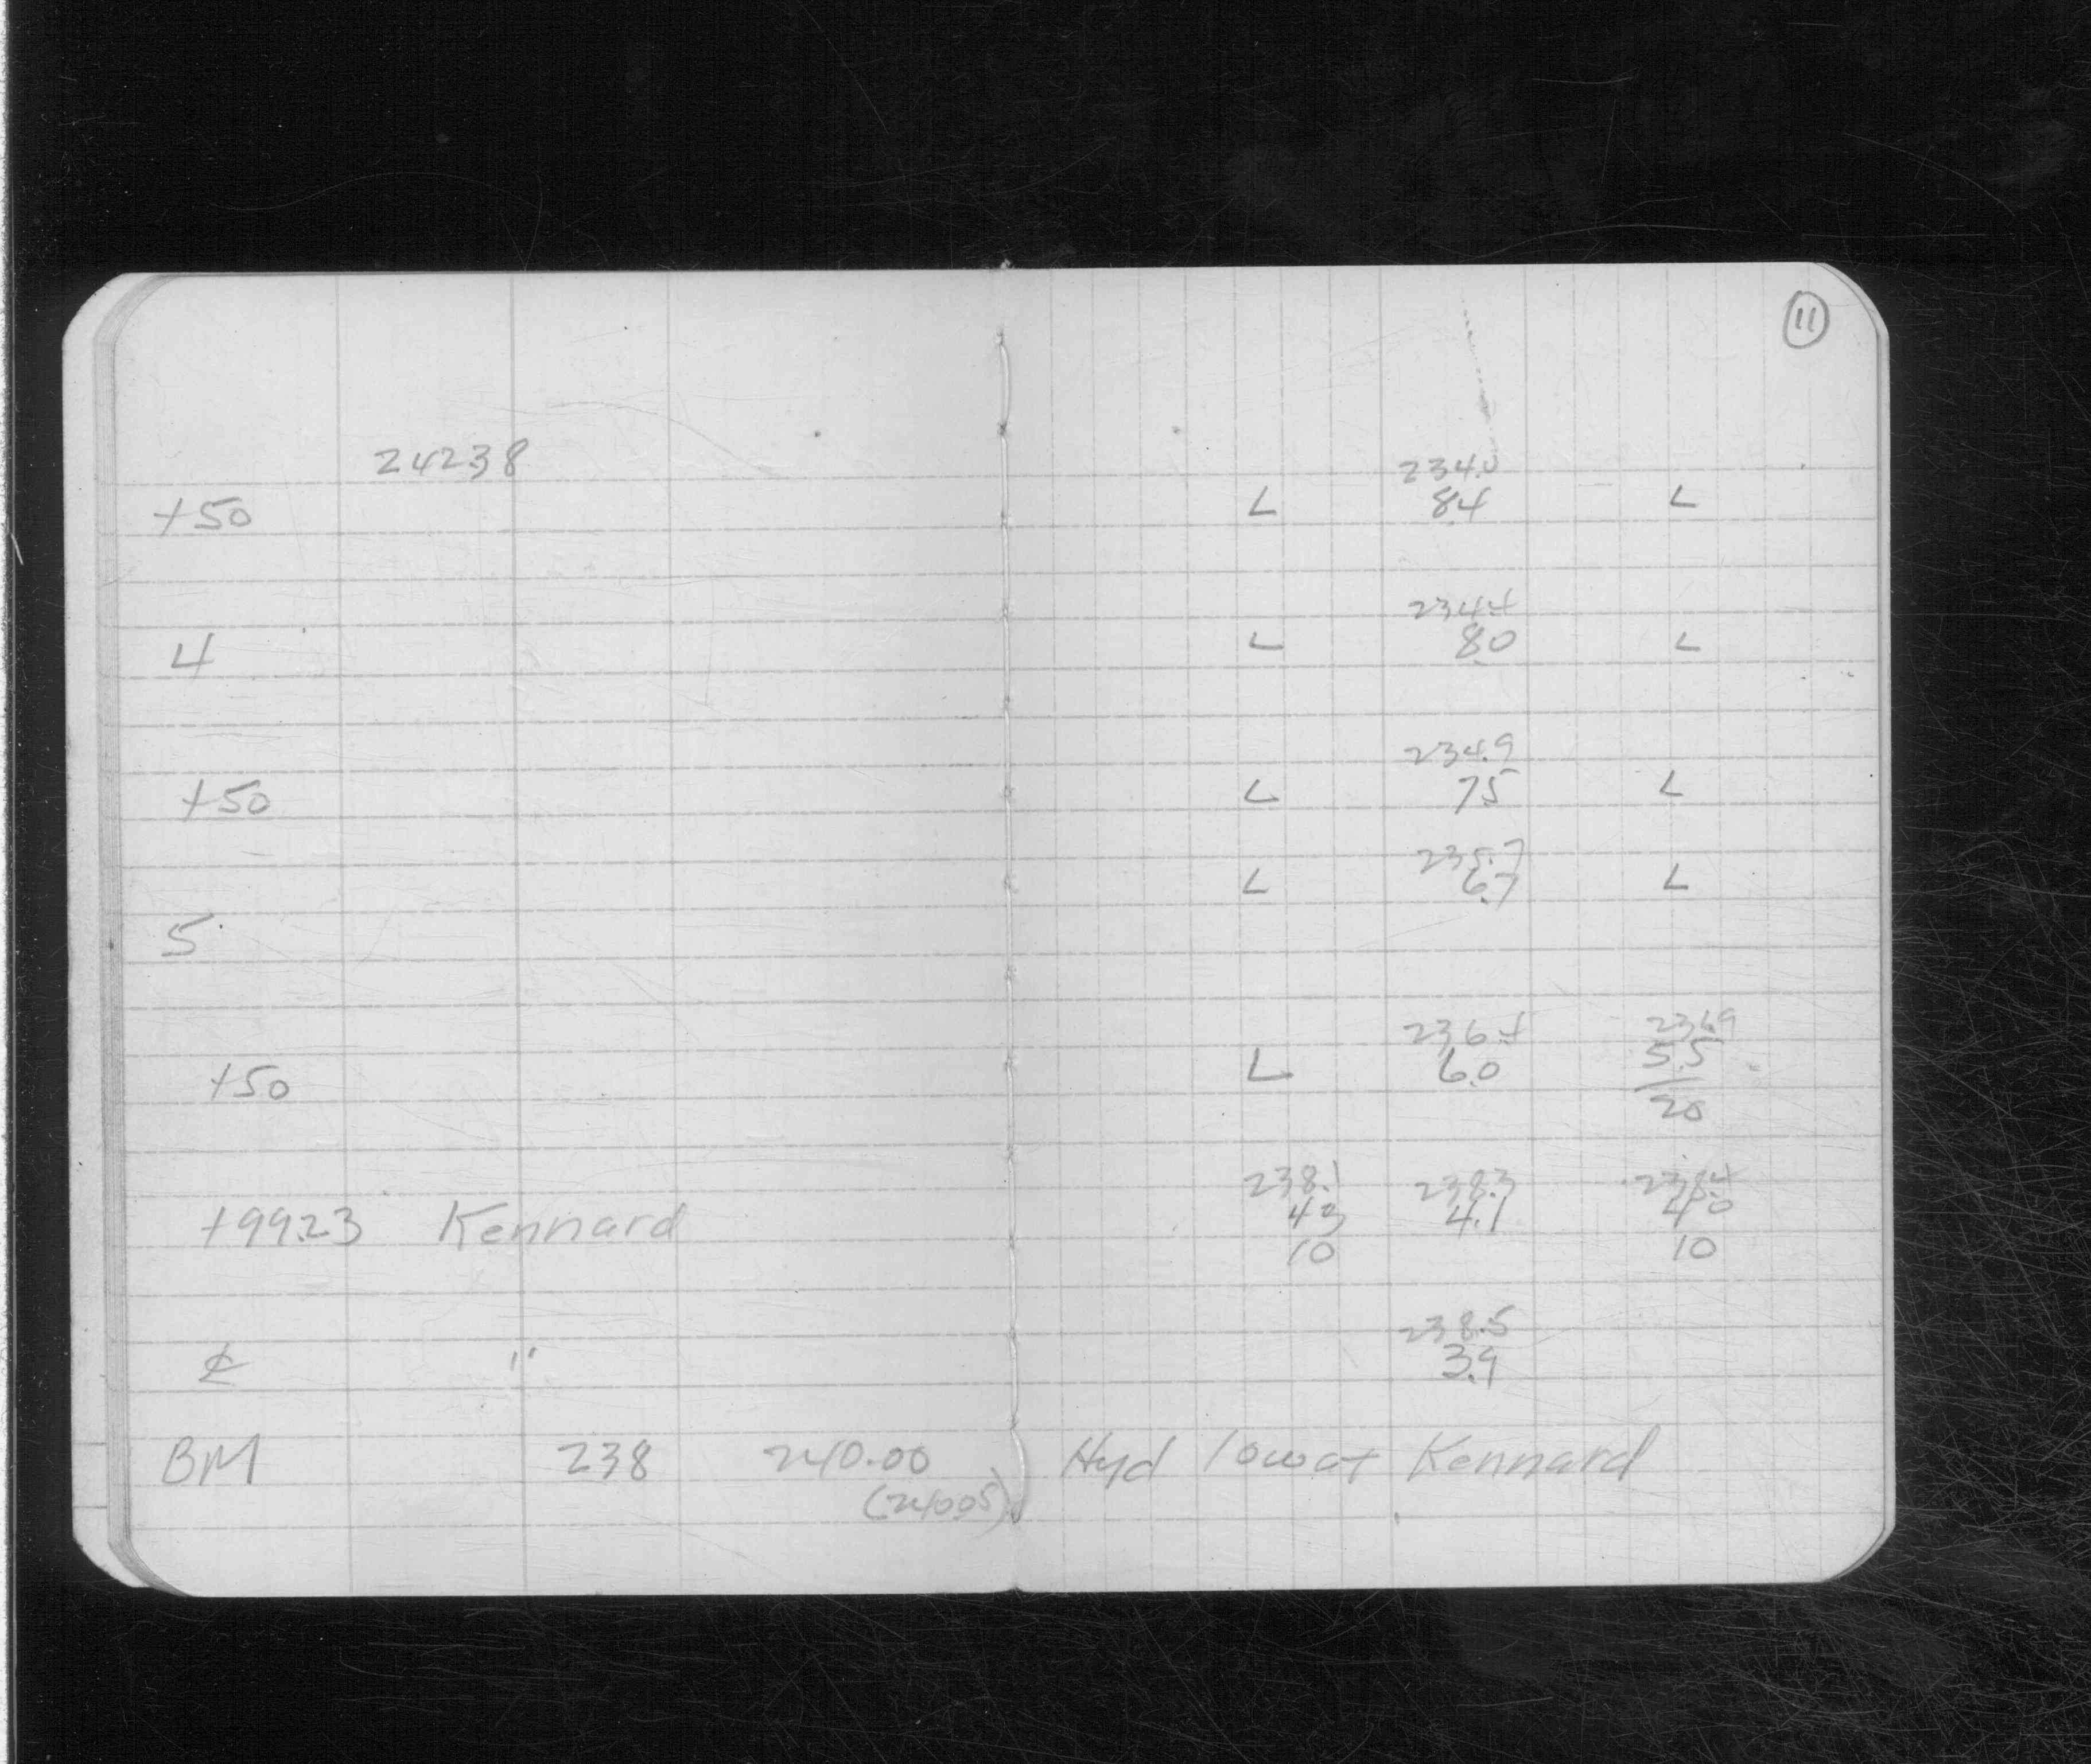 11
24238 234.0
+50 L 84 L
234.4
4 L 8.0 L
234.9
+50 L 75 L
235.7
L 6.7 L
5
236.4 236.9
+50 L 6.0 5.5
20
238.1 238.3 238.4
+99.23 Kennard 43 4.1 40
10 10
238.5
℄ " 3.9
BM 238 240.00 Hyd Iowa + Kennard
(240.05)